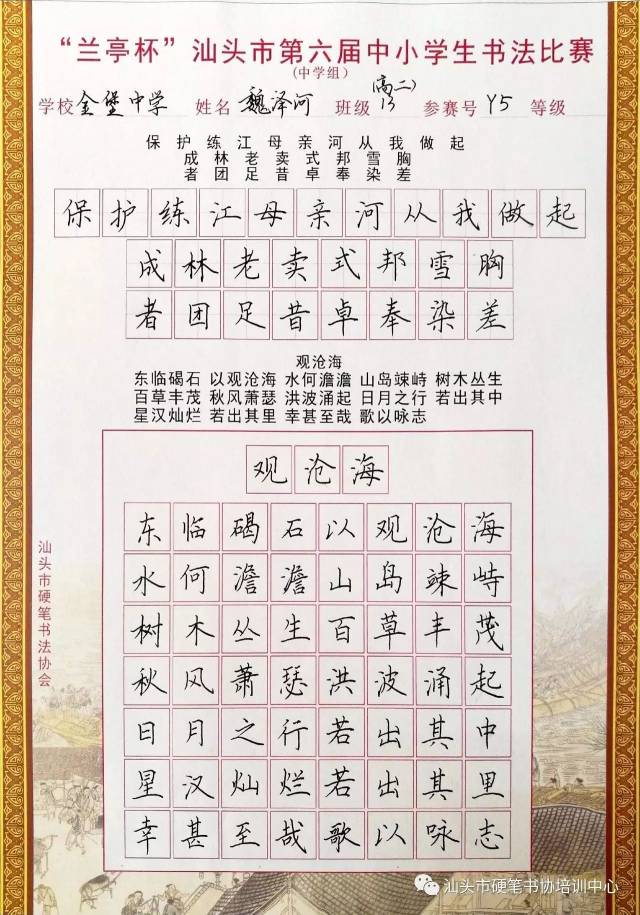 “兰亭杯”汕头市第六届中小学生书法比赛
(中学组)
学校 金堡中学 姓名 魏泽河 班级 高(二)13 参赛号 Y5 等级
保护练江母亲河从我做起
成林老卖式邦雪胸
者团足昔卓奉染差
保护练江母亲河从我做起
成林老卖式邦雪胸
者团足昔卓奉染差
观沧海
东临碣石 以观沧海 水何澹澹 山岛竦峙 树木丛生
百草丰茂 秋风萧瑟 洪波涌起 日月之行 若出其中
星汉灿烂 若出其里 幸甚至哉 歌以咏志
观沧海
东临碣石以观沧海
水何澹澹山岛竦峙
树木丛生百草丰茂
秋风萧瑟洪波涌起
日月之行若出其中
星汉灿烂若出其里
幸甚至哉歌以咏志
汕头市硬笔书法协会
汕头市硬笔书协培训中心